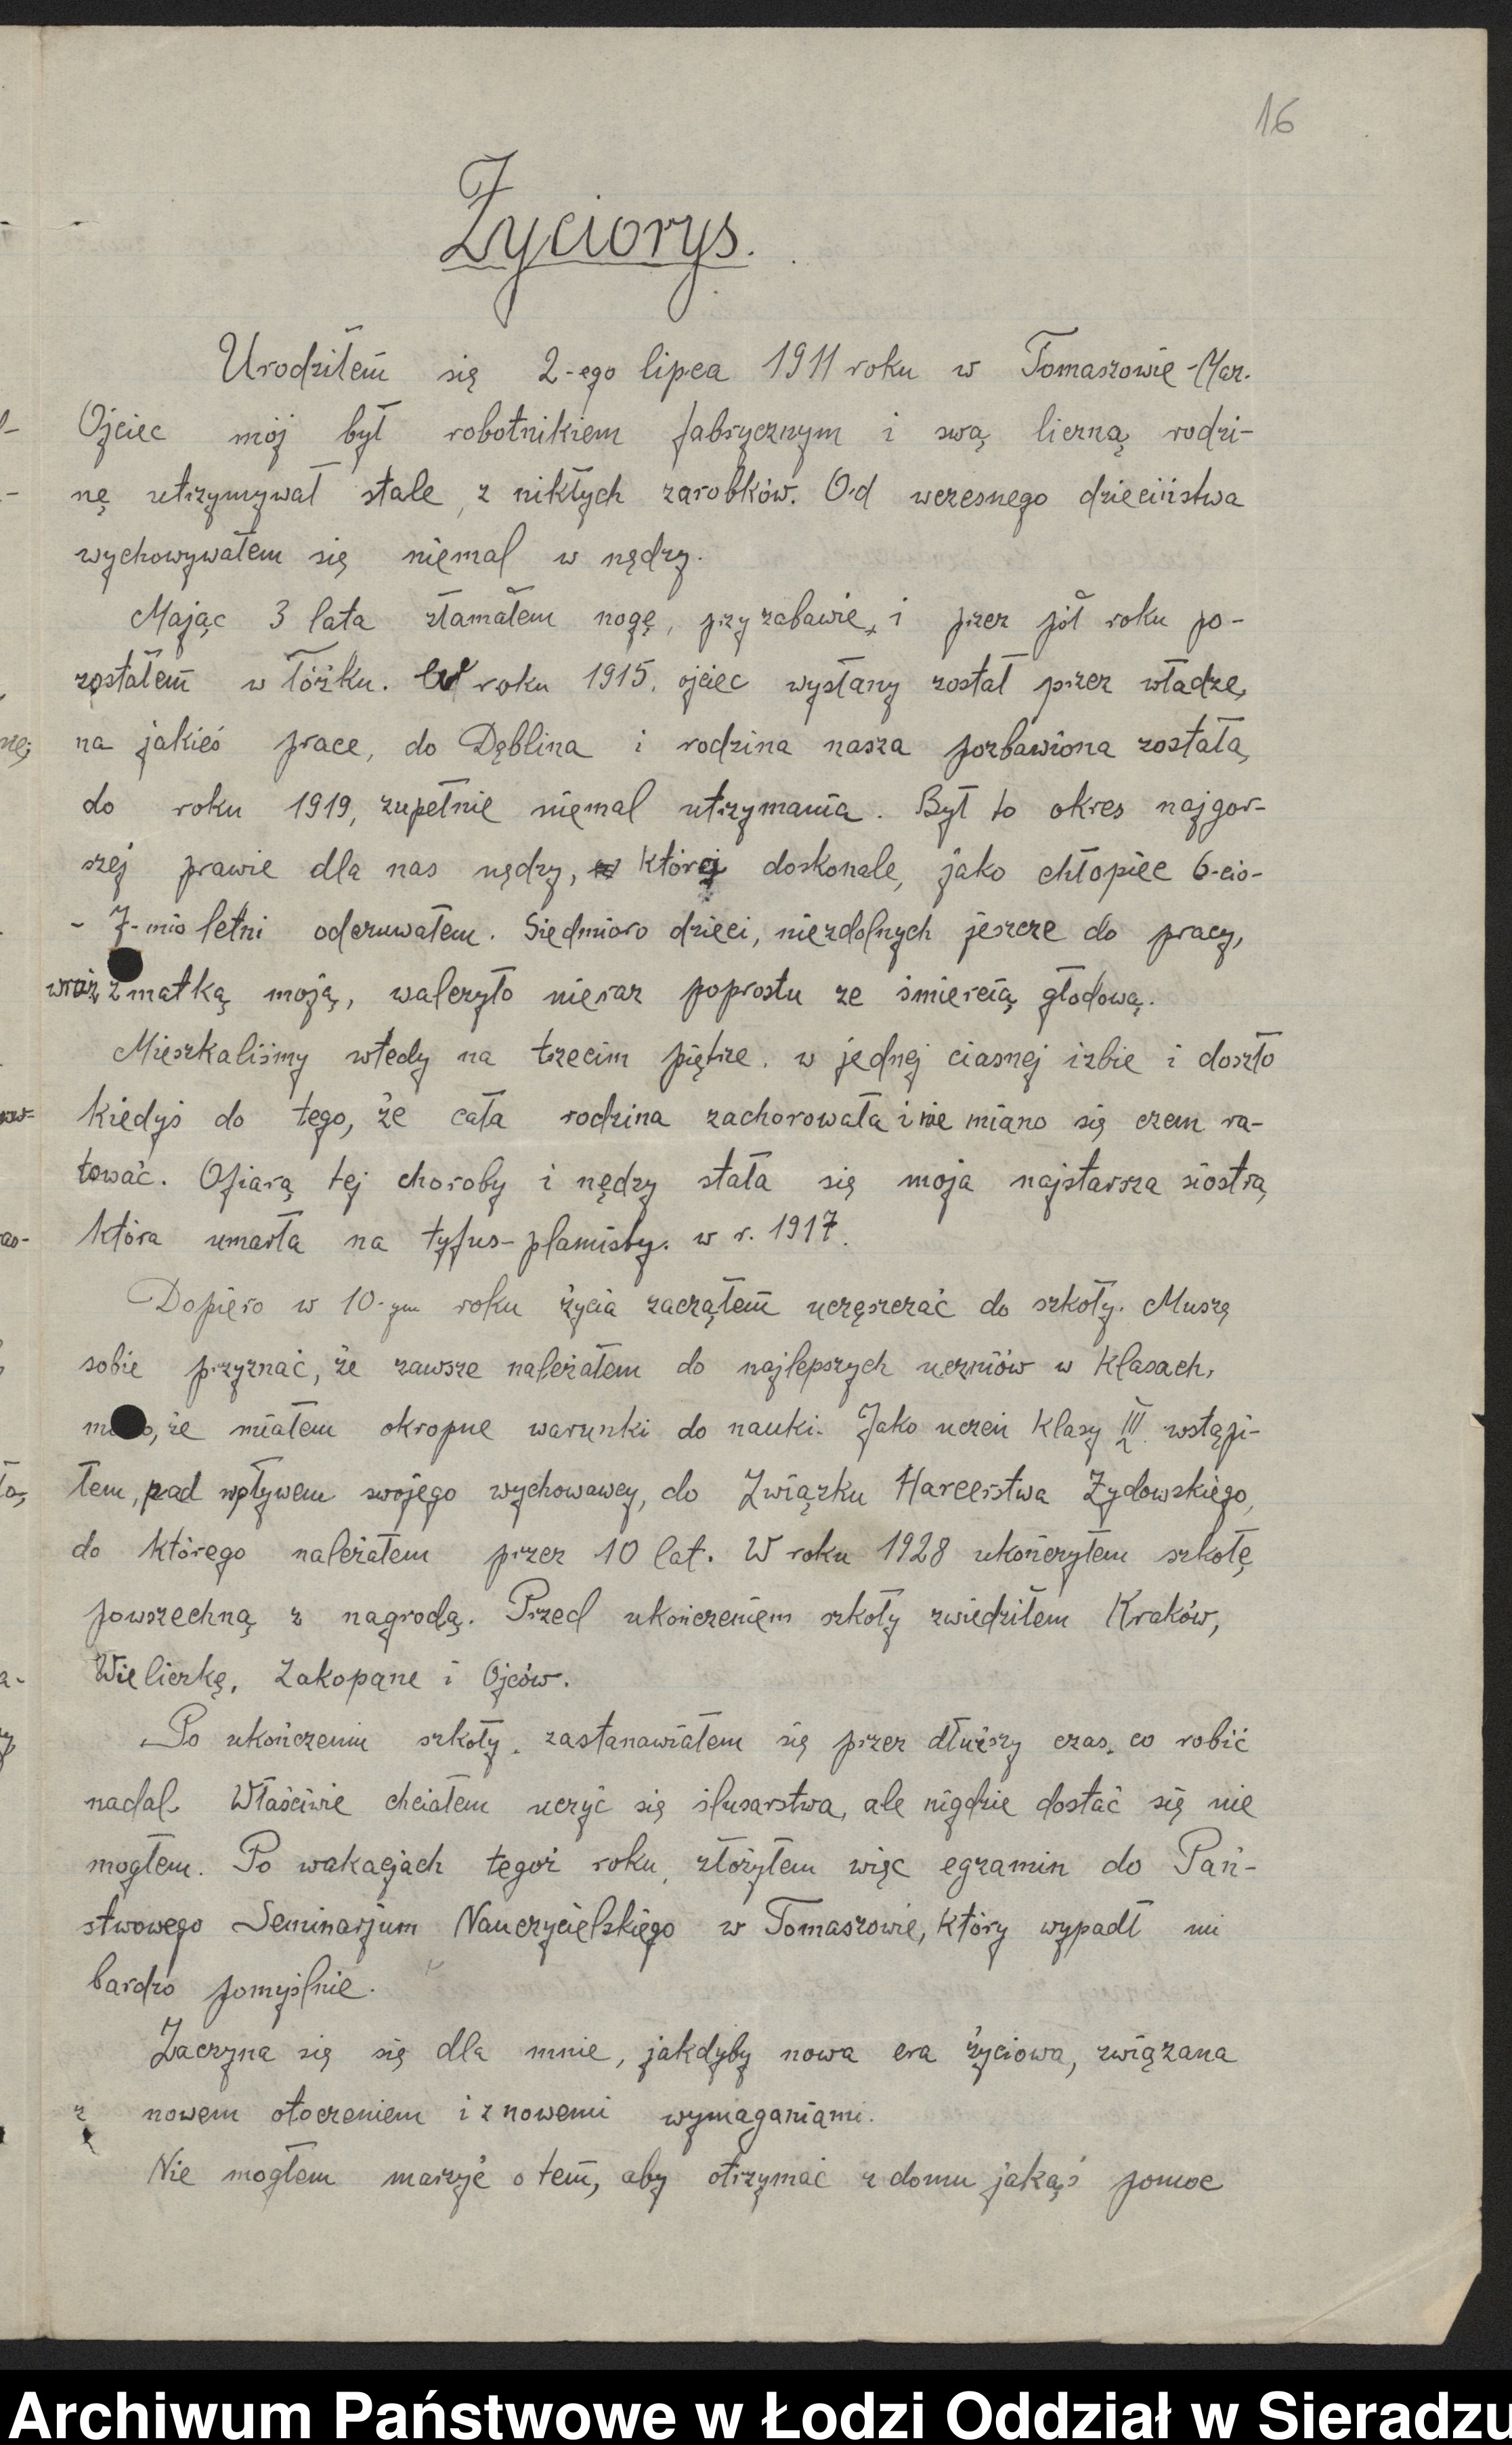 16
Życiorys.
Urodziłem się 2-ego lipca 1911 roku w Tomaszowie-Maz.
Ojciec mój był robotnikiem fabrycznym i swą liczną rodzi-
nę utrzymywał stale, z nikłych zarobków. Od wczesnego dzieciństwa
wychowywałem się niemal w nędzy.
Mając 3 lata złamałem nogę, przy zabawie, i przez pół roku po-
zostałem w łóżku. W roku 1915, ojciec wysłany został przez władze,
na jakieś prace, do Dęblina i rodzina nasza pozbawiona została,
do roku 1919, zupełnie niemal utrzymania. Był to okres najgor-
szej prawie dla nas nędzy, którą doskonale, jako chłopiec 6-cio-
- 7-mio letni odczuwałem. Siedmioro dzieci, niezdolnych jeszcze do pracy,
wraz z matką moją, walczyło nieraz poprostu ze śmiercią głodową.
Mieszkaliśmy wtedy na trzecim piętrze, w jednej ciasnej izbie i doszło
kiedyś do tego, że cała rodzina zachorowała i nie miano się czem ra-
tować. Ofiarą tej choroby i nędzy stała się moja najstarsza siostra,
która umarła na tyfus-plamisty, w r. 1917.
Dopiero w 10-ym roku życia zacząłem uczęszczać do szkoły. Muszę
sobie przyznać, że zawsze należałem do najlepszych uczniów w klasach,
mimo, że miałem okropne warunki do nauki. Jako uczeń klasy III wstąpi-
łem, pod wpływem swojego wychowawcy, do Związku Harcerstwa Żydowskiego,
do którego należałem przez 10 lat. W roku 1928 ukończyłem szkołę
powszechną z nagrodą. Przed ukończeniem szkoły zwiedziłem Kraków,
Wieliczkę, Zakopane i Ojców.
Po ukończeniu szkoły, zastanawiałem się przez dłuższy czas, co robić
nadal. Właściwie chciałem uczyć się ślusarstwa, ale nigdzie dostać się nie
mogłem. Po wakacjach tegoż roku, złożyłem więc egzamin do Pań-
stwowego Seminarjum Nauczycielskiego w Tomaszowie, który wypadł mi
bardzo pomyślnie.
Zaczyna się się dla mnie, jakdyby nowa era życiowa, związana
z nowem otoczeniem i z nowemi wymaganiami.
Nie mogłem marzyć o tem, aby otrzymać z domu jakąś pomoc
Archiwum Państwowe w Łodzi Oddział w Sieradzu